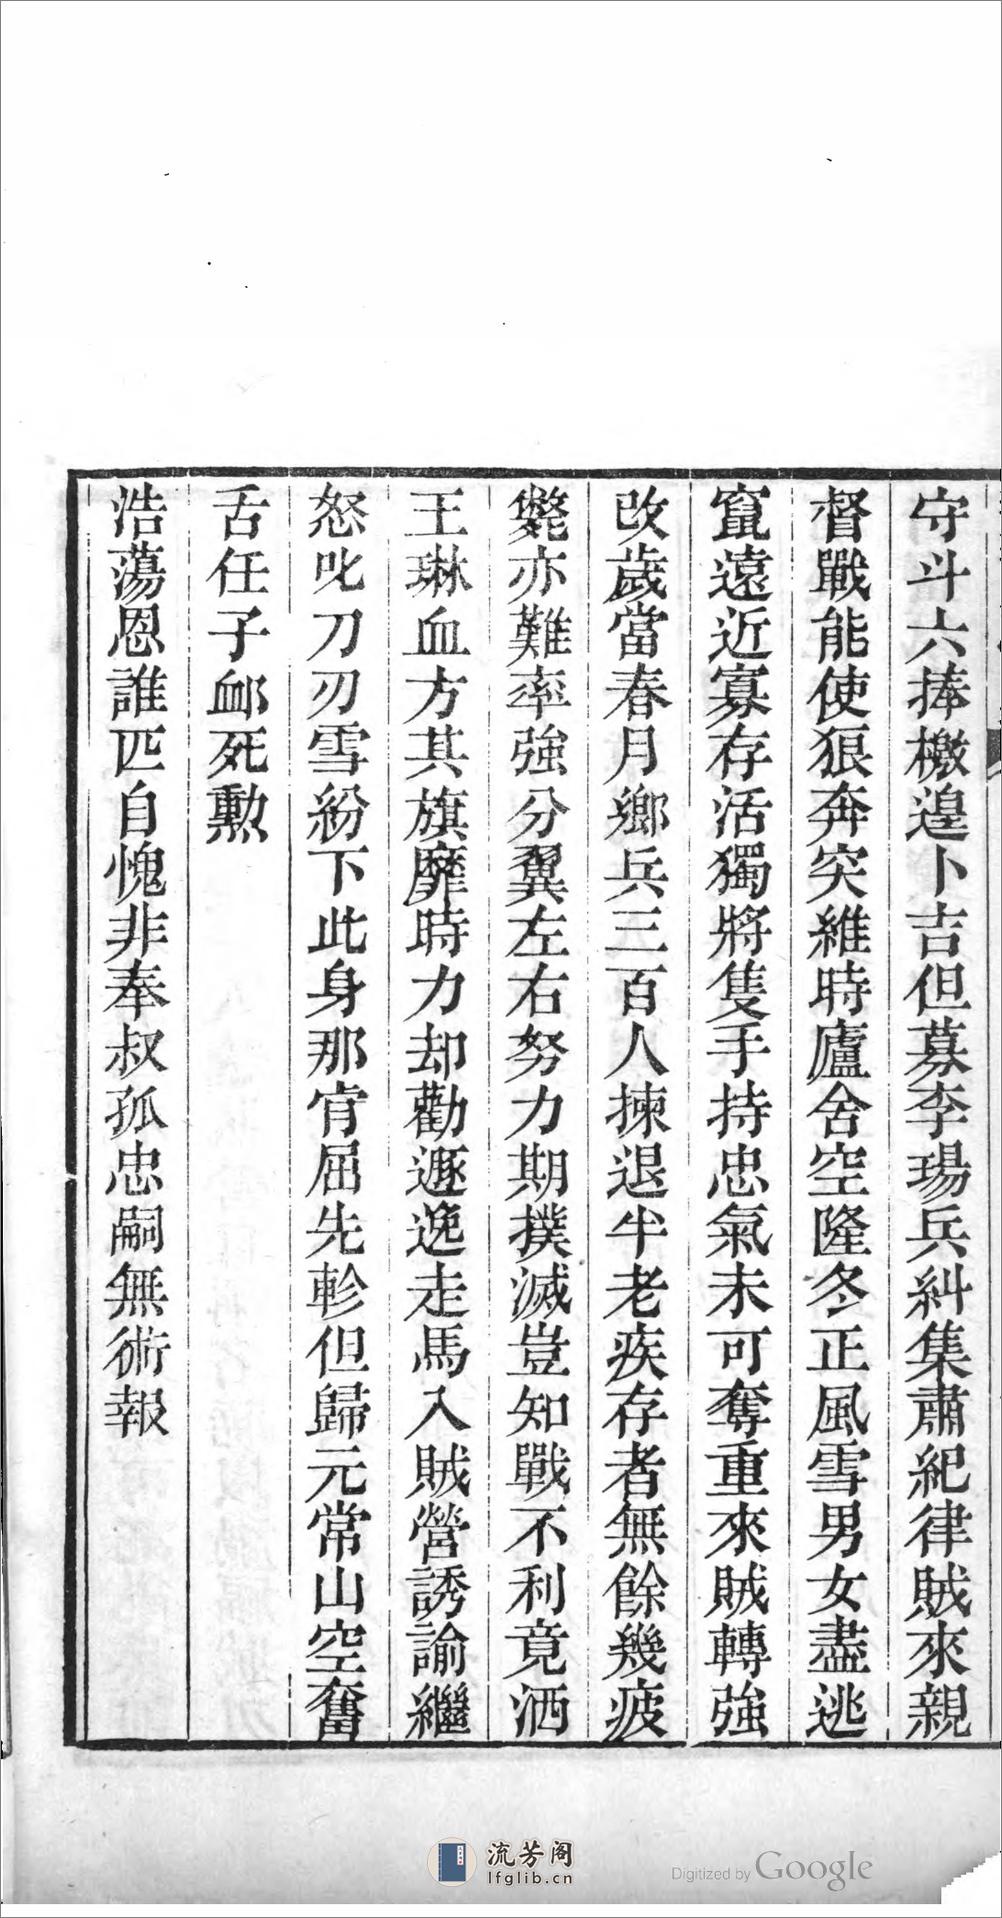 守斗六捧檄遑卜吉但募李瑒兵糾集肅紀律賊來親
督戰能使狼奔突維時廬舍空隆冬正風雪男女盡逃
竄遠近寡存活獨將隻手持忠氣未可奪重來賊轉強
改歲當春月鄉兵三百人揀退半老疾存者無餘幾疲
斃亦難率強分翼左右努力期撲滅豈知戰不利竟洒
王琳血方其旗靡時力却勸遯逸走馬入賊營誘諭繼
怒叱刀刃雪紛下此身那肯屈先軫但歸元常山空奮
舌任子卹死勳
浩蕩恩誰匹自愧非奉叔孤忠嗣無術報
流芳阁
lfglib.cn
Digitized by Google